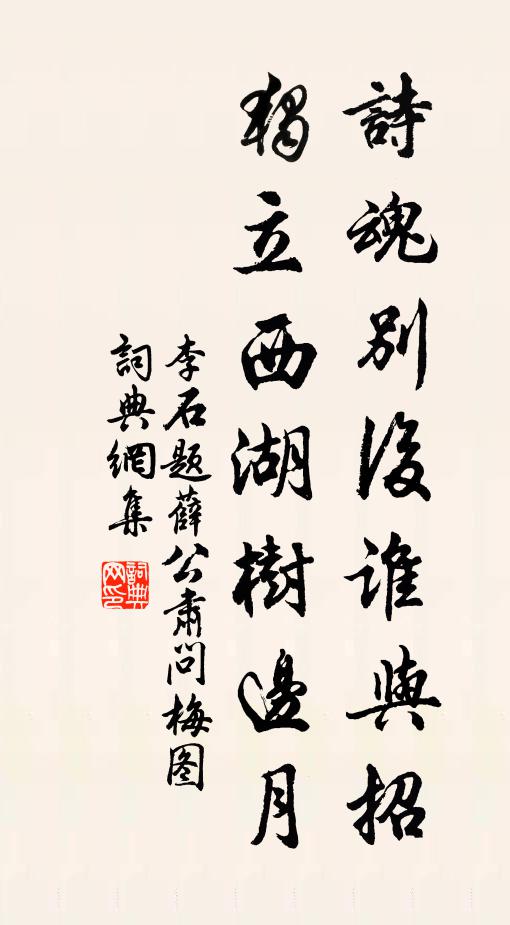 詩魂別後誰與招
獨立西湖樹邊月
李石题薛公肅问梅图
詞典網集
詞典网印